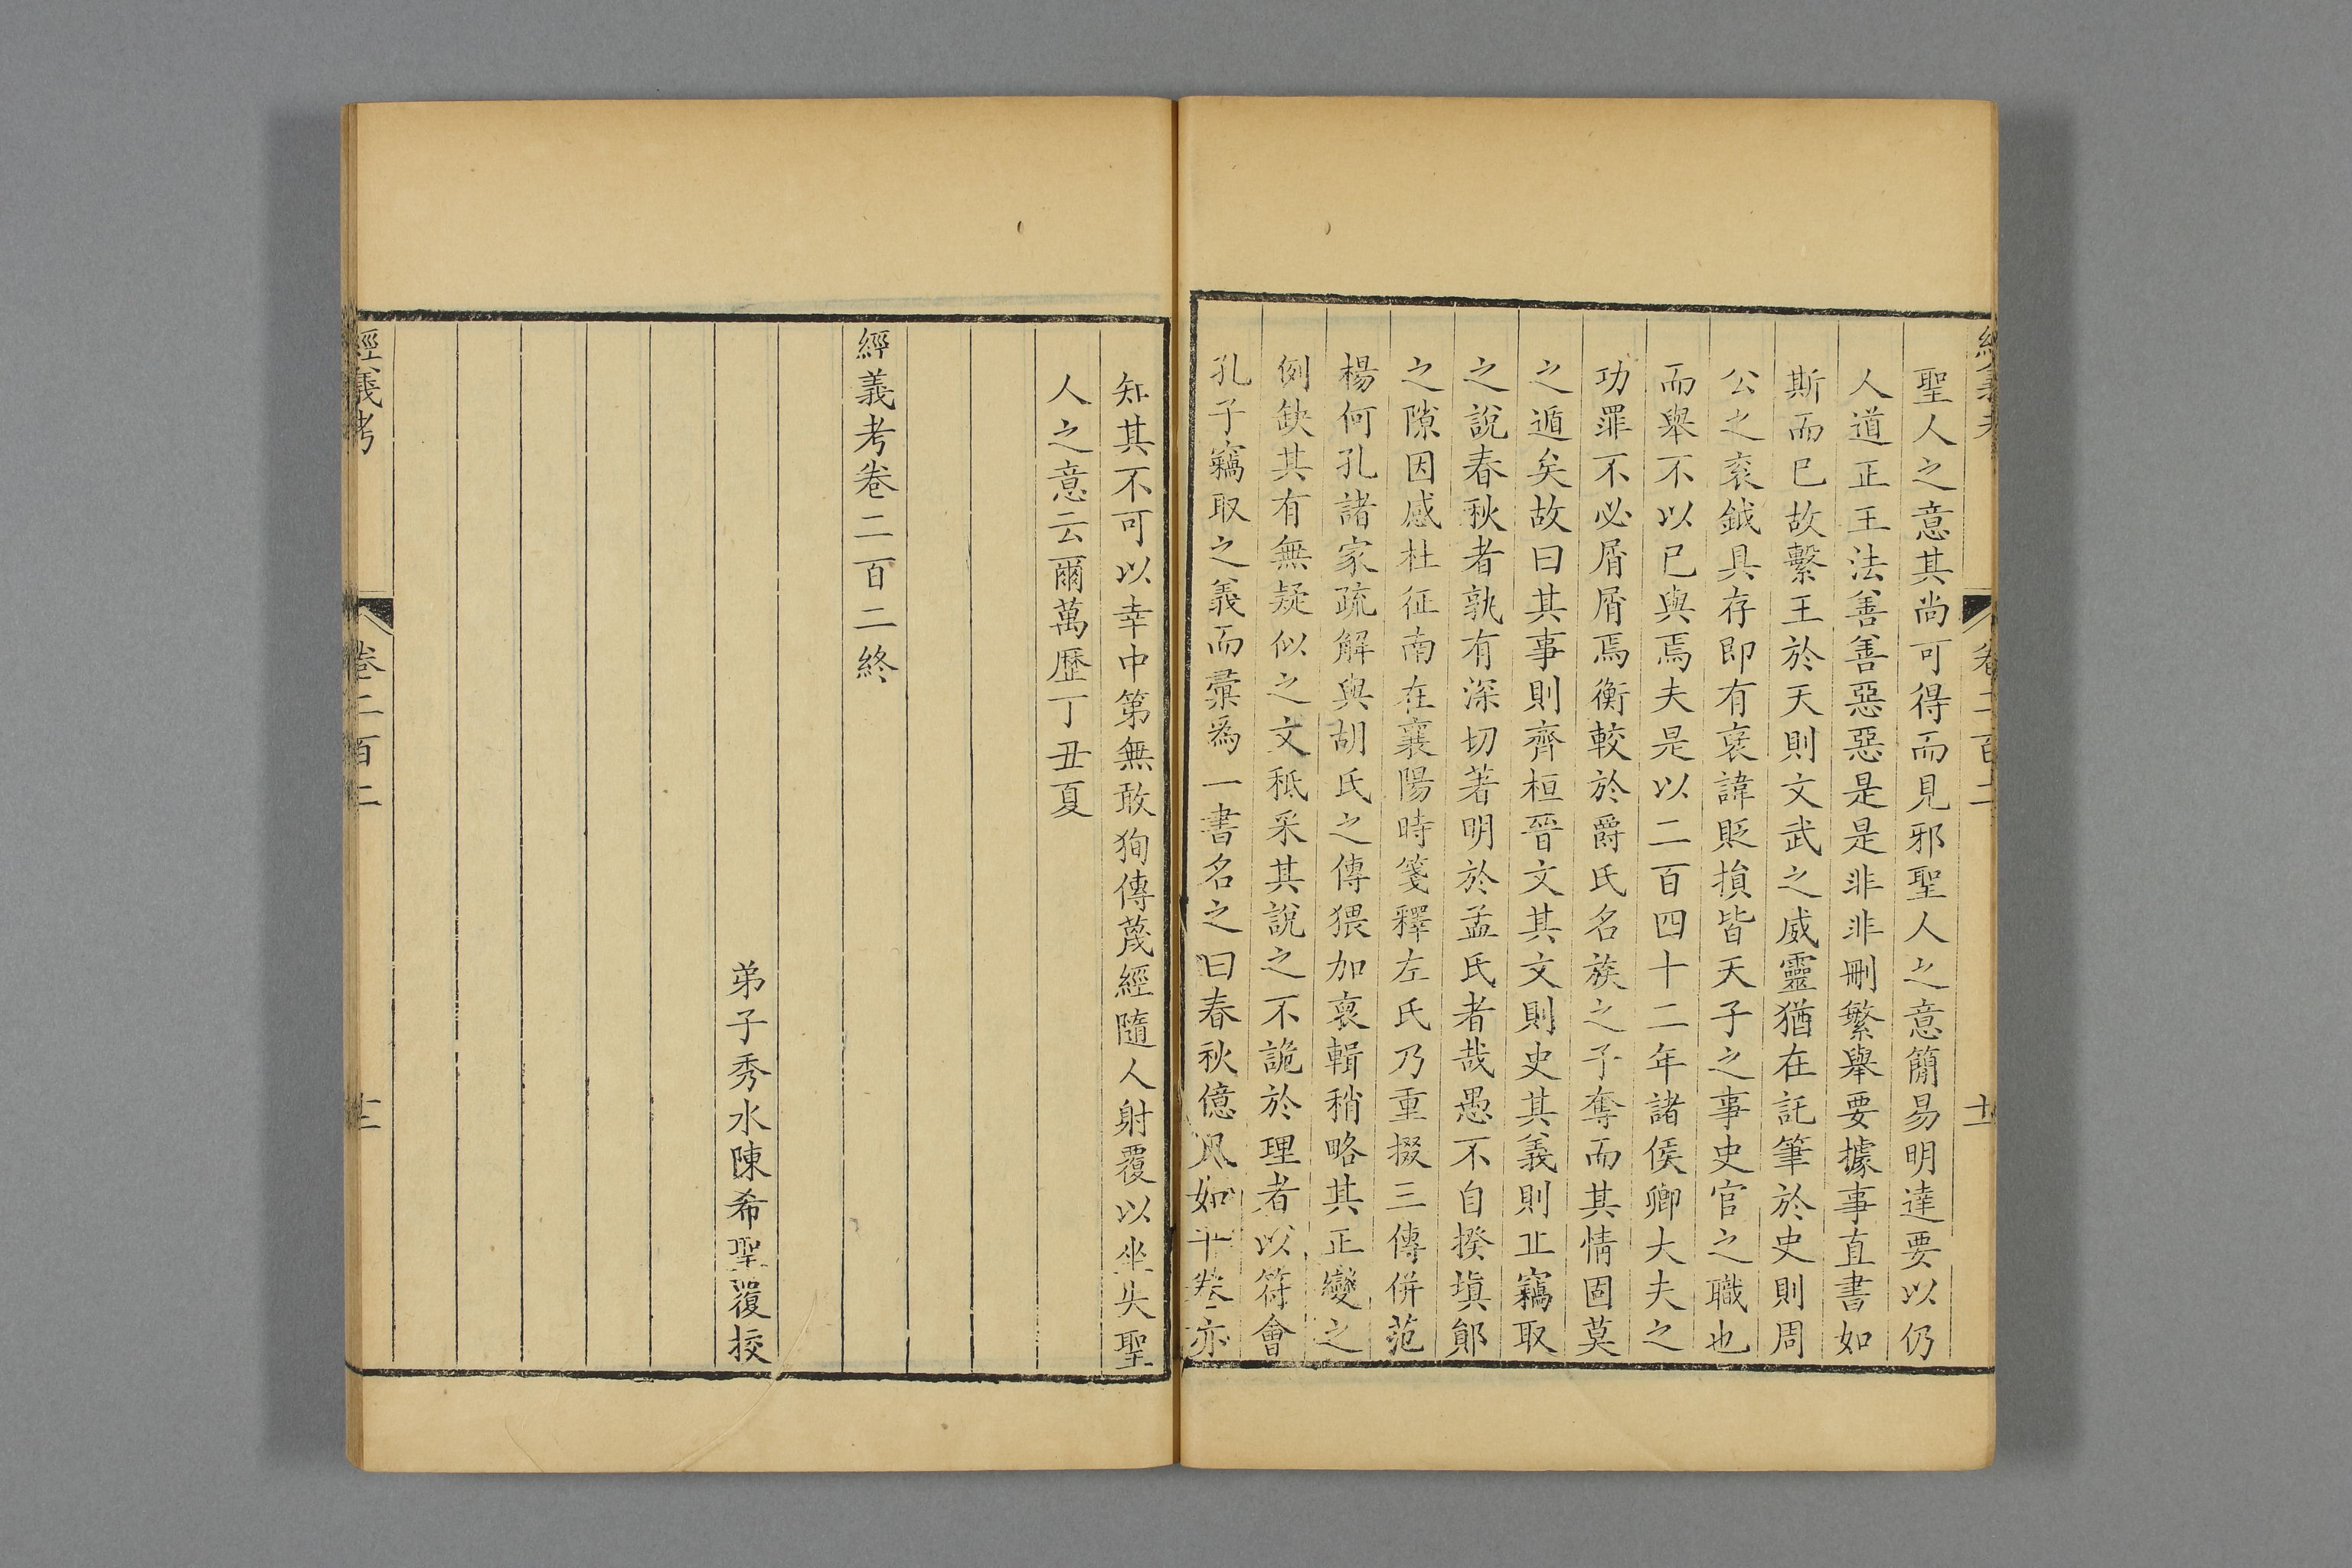 聖人之意其尚可得而見邪聖人之意簡易明達要以仍
人道正王法善善惡惡是是非非刪繁舉要據事直書如
斯而已故繫王於天則文武之威靈猶在託筆於史則周
公之袞鉞具存即有褒諱貶損皆天子之事史官之職也
而舉不以已與焉夫是以二百四十二年諸侯卿大夫之
功罪不必屑屑焉衡較於爵氏名族之予奪而其情固莫
之遁矣故曰其事則齊桓晉文其文則史其義則丘竊取
之說春秋者孰有深切著明於孟氏者哉愚不自揆塡鄖
之隙因感杜征南在襄陽時箋釋左氏乃重掇三傳併范
楊何孔諸家疏解與胡氏之傳猥加裒輯稍略其正變之
例缺其有無疑似之文秪采其說之不詭於理者以符會
孔子竊取之義而彙爲一書名之曰春秋億凡如干卷亦
經義考
卷二百二
十一
知其不可以幸中第無敢狥傳蔑經隨人射覆以坐失聖
人之意云爾萬歷丁丑夏
經義考卷二百二終
弟子秀水陳希聖覆挍
經義考
卷二百二
十二